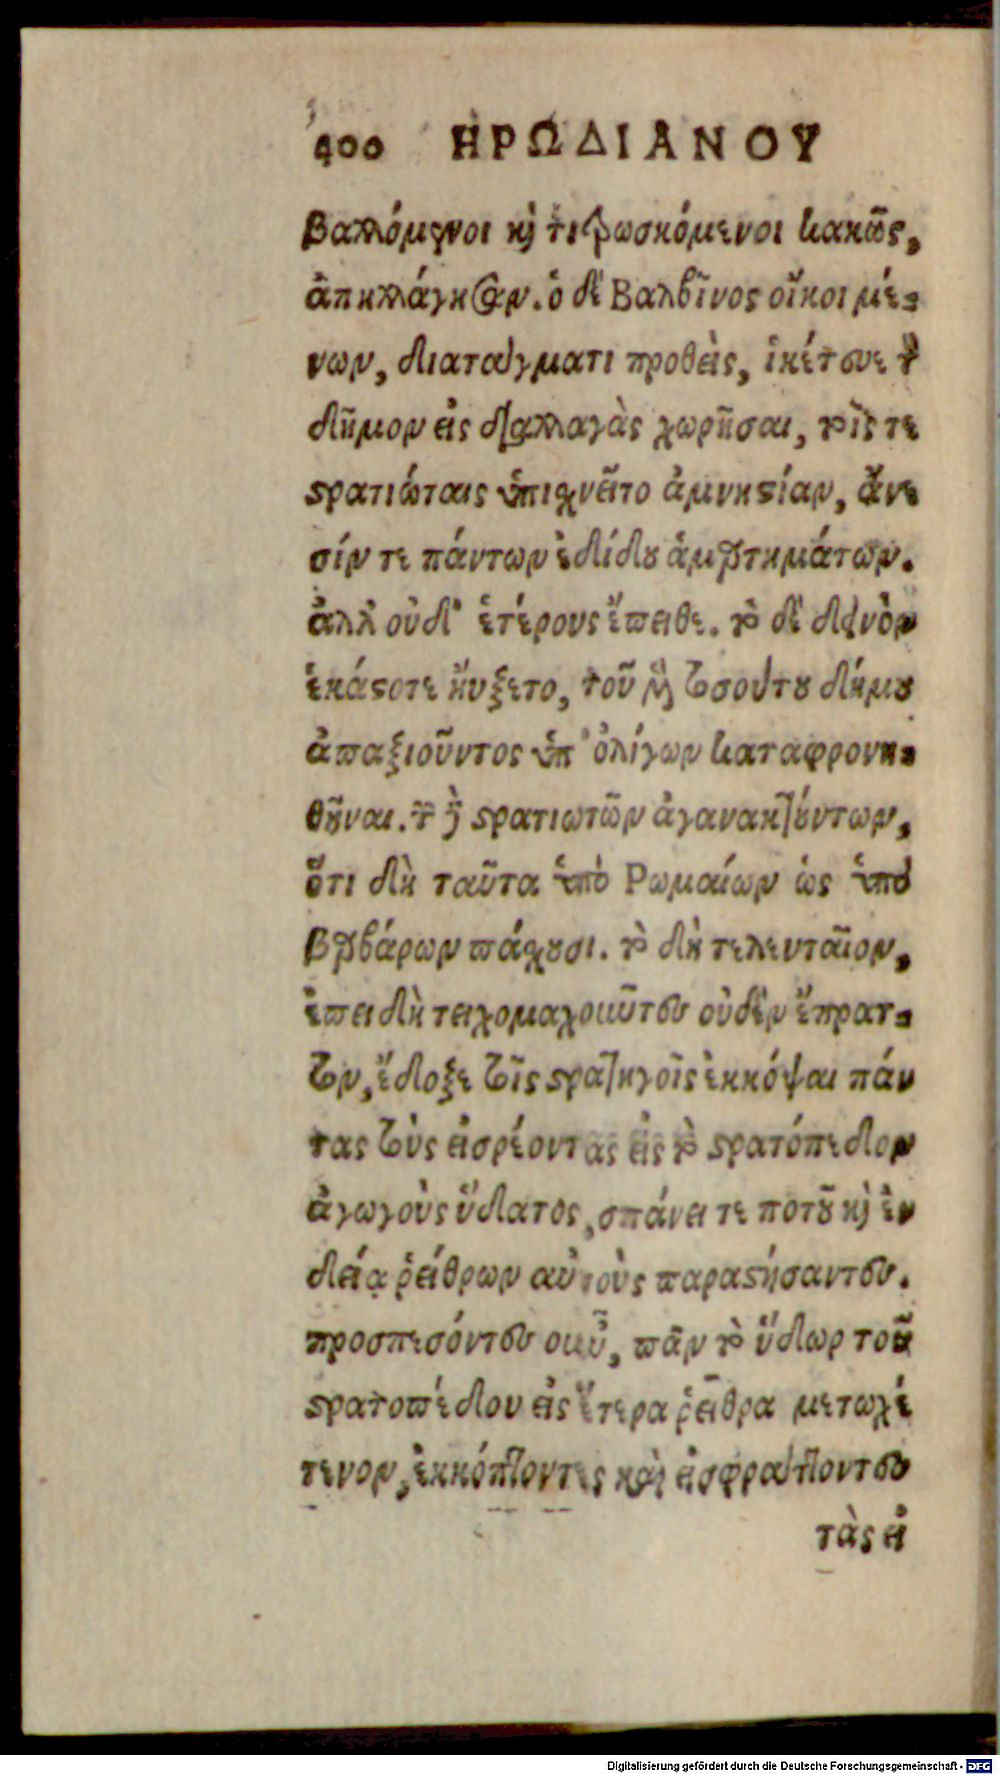 400 ΗΡΩΔΙΑΝΟΥ
βαλλόμενοι καὶ τιτρωσκόμενοι κακῶς,
ἀπηλλάγησαν. ὁ δὲ Βαλβῖνος οἴκοι μέ-
νων, διατάγματι προθεὶς, ἱκέτευε τὸν
δῆμον εἰς διαλλαγὰς χωρῆσαι, τοῖς τε
στρατιώταις ὑπισχνεῖτο ἀμνηστίαν, ἄνε
σίν τε πάντων ἐδίδου ἁμαρτημάτων.
ἀλλ' οὐδ' ἑτέρους ἔπειθε. τὸ δὲ δεινὸν
ἑκάστοτε ηὔξετο, τοῦ μὲν τοσούτου δήμου
ἀπαξιοῦντος ὑπ' ὀλίγων καταφρονη-
θῆναι. τῶν δὲ στρατιωτῶν ἀγανακτούντων,
ὅτι δὴ ταῦτα ὑπὸ Ρωμαίων ὡς ὑπὸ
βαρβάρων πάσχουσι. τὸ δὴ τελευταῖον,
ἐπειδὴ τειχομαχοῦντες οὐδὲν ἔπρατ-
τον, ἔδοξε τοῖς στρατηγοῖς ἐκκόψαι πάν
τας τοὺς εἰσρέοντας εἰς τὸ στρατόπεδον
ἀγωγοὺς ὕδατος, σπάνει τε ποτοῦ καὶ ἐν
δείᾳ ῥείθρων αὐτοὺς παραστήσαντες.
προσπεσόντες οὖν, πᾶν τὸ ὕδωρ τοῦ
στρατοπέδου εἰς ἕτερα ῥεῖθρα μετωχέ
τευον, ἐκκόπτοντες καὶ ἐμφράττοντες
τὰς εἰ
Digitalisierung gefördert durch die Deutsche Forschungsgemeinschaft - DFG